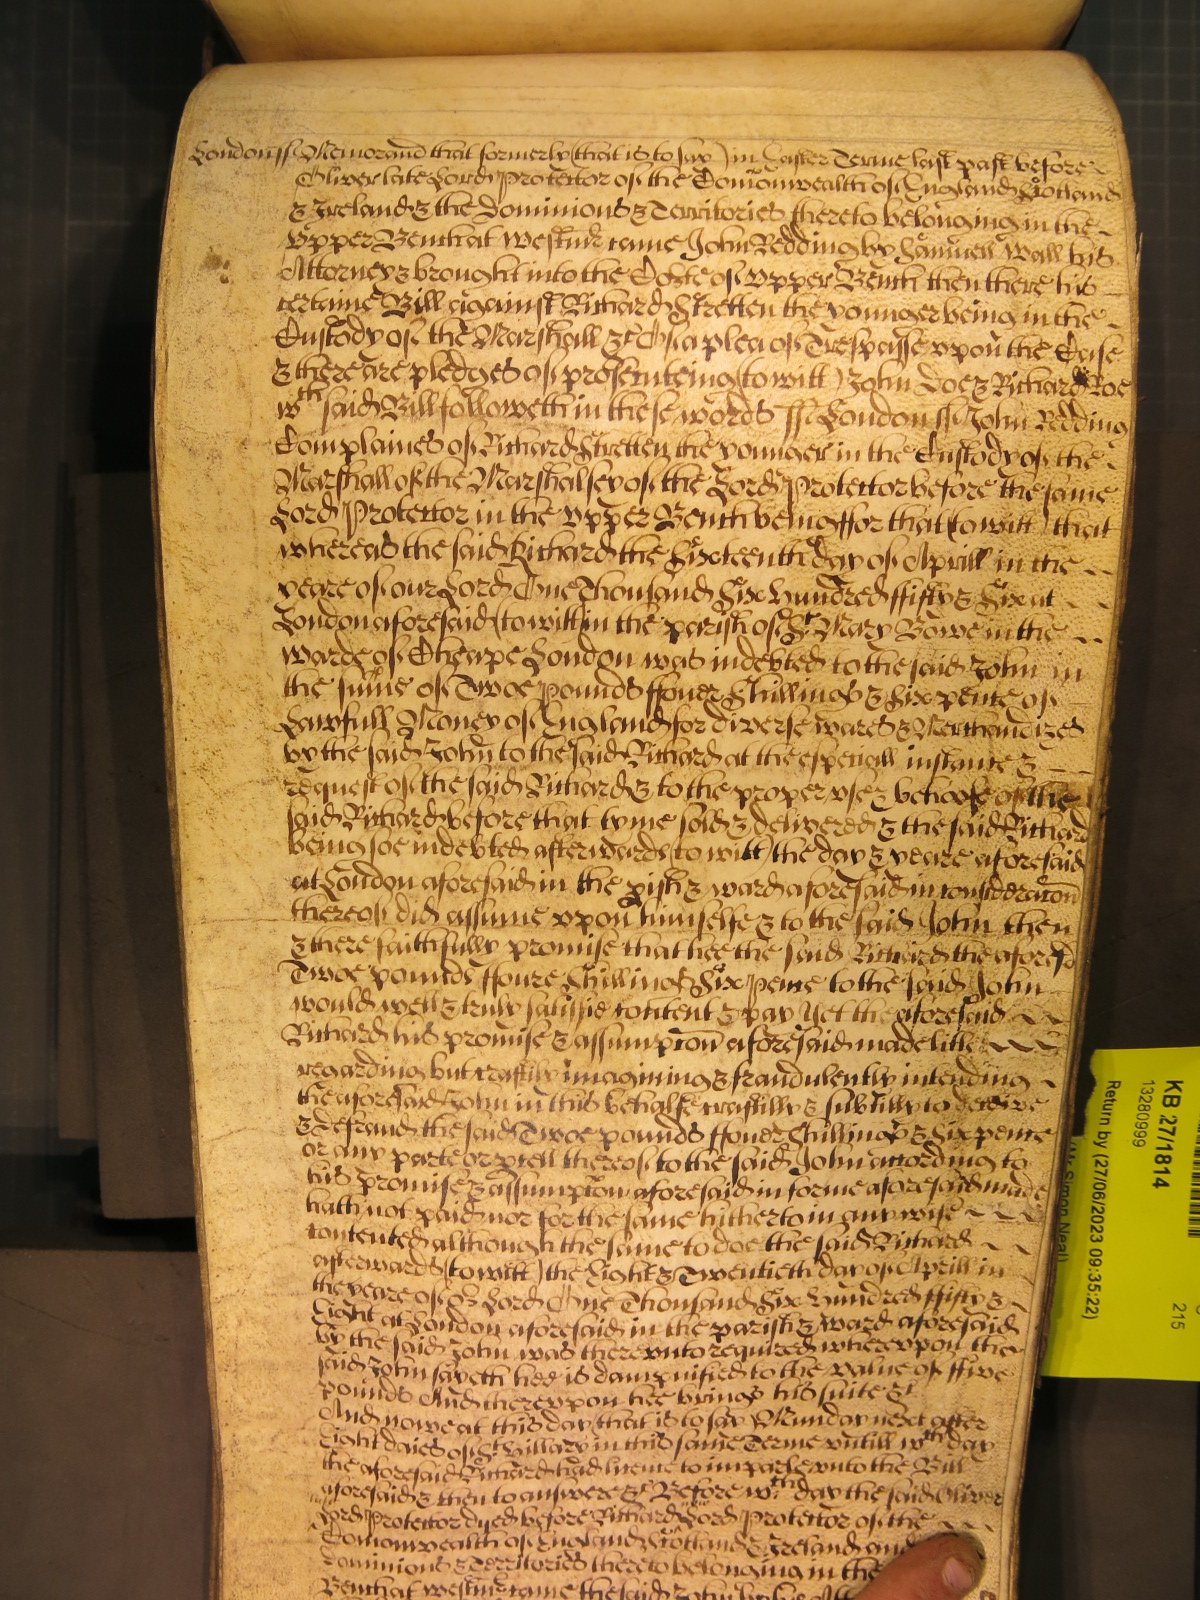 London ss Memorand that formerly (that is to say) in Easter Terme last past before
Oliver late Lord Protector of the Comonwealth of England Scotland
& Ireland & the Dominions & Territories thereto belonging in the
Vpper Bench at Westmr came John Redding by Samuell Wall his
Attorney & brought into the Co:te of Vpper Bench then there his
certeine Bill against Richard Stretten the younger being in the
Custody of the Marshall &c Of a plea of Trespasse vpon the Case
& there are pledges of prosecuteing (to witt) John Doe & Richard Roe
wch said Bill followeth in these words ss London ss John Redding
Complaines of Richard Stretten the younger in the Custody of the
Marshall of the Marshalsey of the Lord Protector before the same
Lord Protector in the Vpper Bench being ffor that (to witt) that
whereas the said Richard the Sixteenth day of Aprill in the
yeare of our Lord One Thousand Six Hundred ffifty & Six at
London aforesaid (to witt) in the parish of St Mary Bowe in the
warde of Cheape London was indebted to the said John in
the sume of Twoe pounds ffouer Shillings & Six pence of
Lawfull Money of England for diverse wares & Merchandizes
by the said John to the said Richard at the especiall instance &
request of the said Richard & to the proper vse & behoofe of the
said Richard before that tyme sold & delivered & the said Richard
being soe indebted afterwards (to witt) the day & yeare aforesaid
at London aforesaid in the pish & ward aforesaid in consideracon
thereof did assume vpon himselfe & to the said John then
& there faithfully promise that hee the said Richard the aforesd
Twoe pounds ffoure Shillings Six pence to the said John
would well & truly satisfie content & pay Yet the aforesaid
Richard his promise & assumpcon aforesaid made little
regarding but craftily imagining & fraudulently intending
the aforesaid John in this behalfe craftilly & subtilly to deceive
& defraud the said Twoe pounds ffouer Shillings & Six pence
or any parte or pcell thereof to the said John according to
his promise & assumpcon aforesaid in forme aforesaid made
hath not paid nor for the same hitherto in any wise
contented although the same to doe the said Richard
afterwards (to witt) the Eight & Twentieth day of Aprill in
the yeare of or Lord One Thousand Six Hundred ffifty &
Eight at London aforesaid in the parish & ward aforesaid
by the said John was therevnto required wherevpon the
said John sayeth hee is dampnified to the value of ffive
pounds And therevpon hee brings his suite &c
And nowe at this day that is to say Munday next after
Eight daies of St Hillary in this same Terme vntill wch day
the aforesaid Richard had licence to imparle vnto the Bill
aforesaid & then to answere &c Before wch day the said Oliver
Lord Protector dyed before Richard Lord Protector of the
Comonwealth of England Scotland & Ireland and
Dominions & Territories thereto belonging in the
Bench at Westmr came the said John by his
KB 27/1814
13280999
Return by (27/06/2023 09:35:22)
Simon Neal)
215